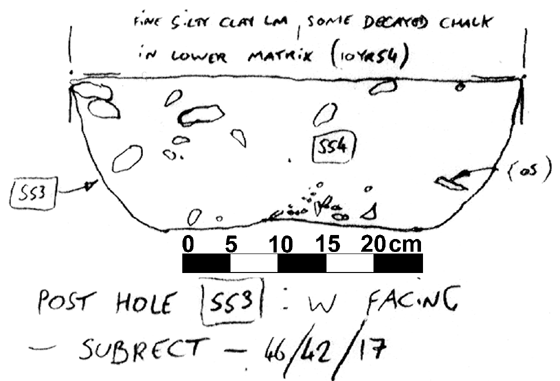 FINE SILTY CLAY LM, SOME DECAYED CHALK
IN LOWER MATRIX (10YR54)
554
(OS)
553
0 5 10 15 20 cm
POST HOLE 553 : W FACING
- SUBRECT - 46/42/17